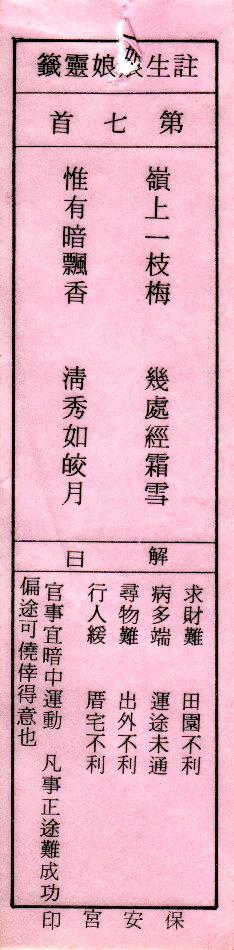 註生娘娘靈籤
第七首
嶺上一枝梅　幾處經霜雪
惟有暗飄香　清秀如皎月
解曰
求財難　田園不利
病多端　運途未通
尋物難　出外不利
行人緩　厝宅不利
官事宜暗中運動　凡事正途難成功
偏途可僥倖得意也
保安宮印